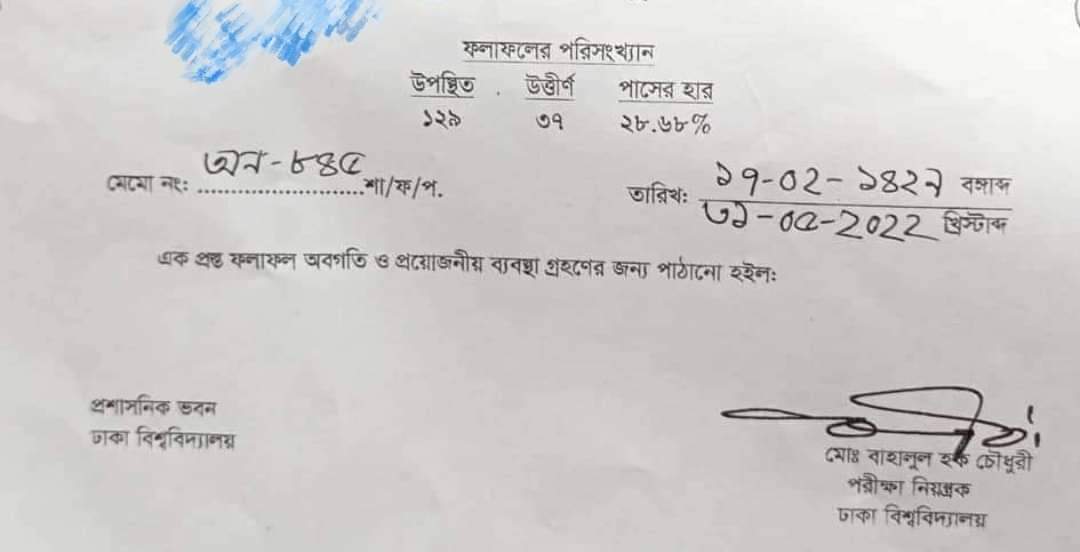 ফলাফলের পরিসংখ্যান
উপস্থিত . উত্তীর্ণ পাসের হার
১২৯ ৩৭ ২৮.৬৮%
মেমো নং: অন-৮৪৫ শা/ফ/প.
তারিখ: ১৭-০২-১৪২৯ বঙ্গাব্দ
৩১-০৫-2022 খ্রিস্টাব্দ
এক প্রস্থ ফলাফল অবগতি ও প্রয়োজনীয় ব্যবস্থা গ্রহণের জন্য পাঠানো হইল:
প্রশাসনিক ভবন
ঢাকা বিশ্ববিদ্যালয়
মোঃ বাহালুল হক চৌধুরী
পরীক্ষা নিয়ন্ত্রক
ঢাকা বিশ্ববিদ্যালয়